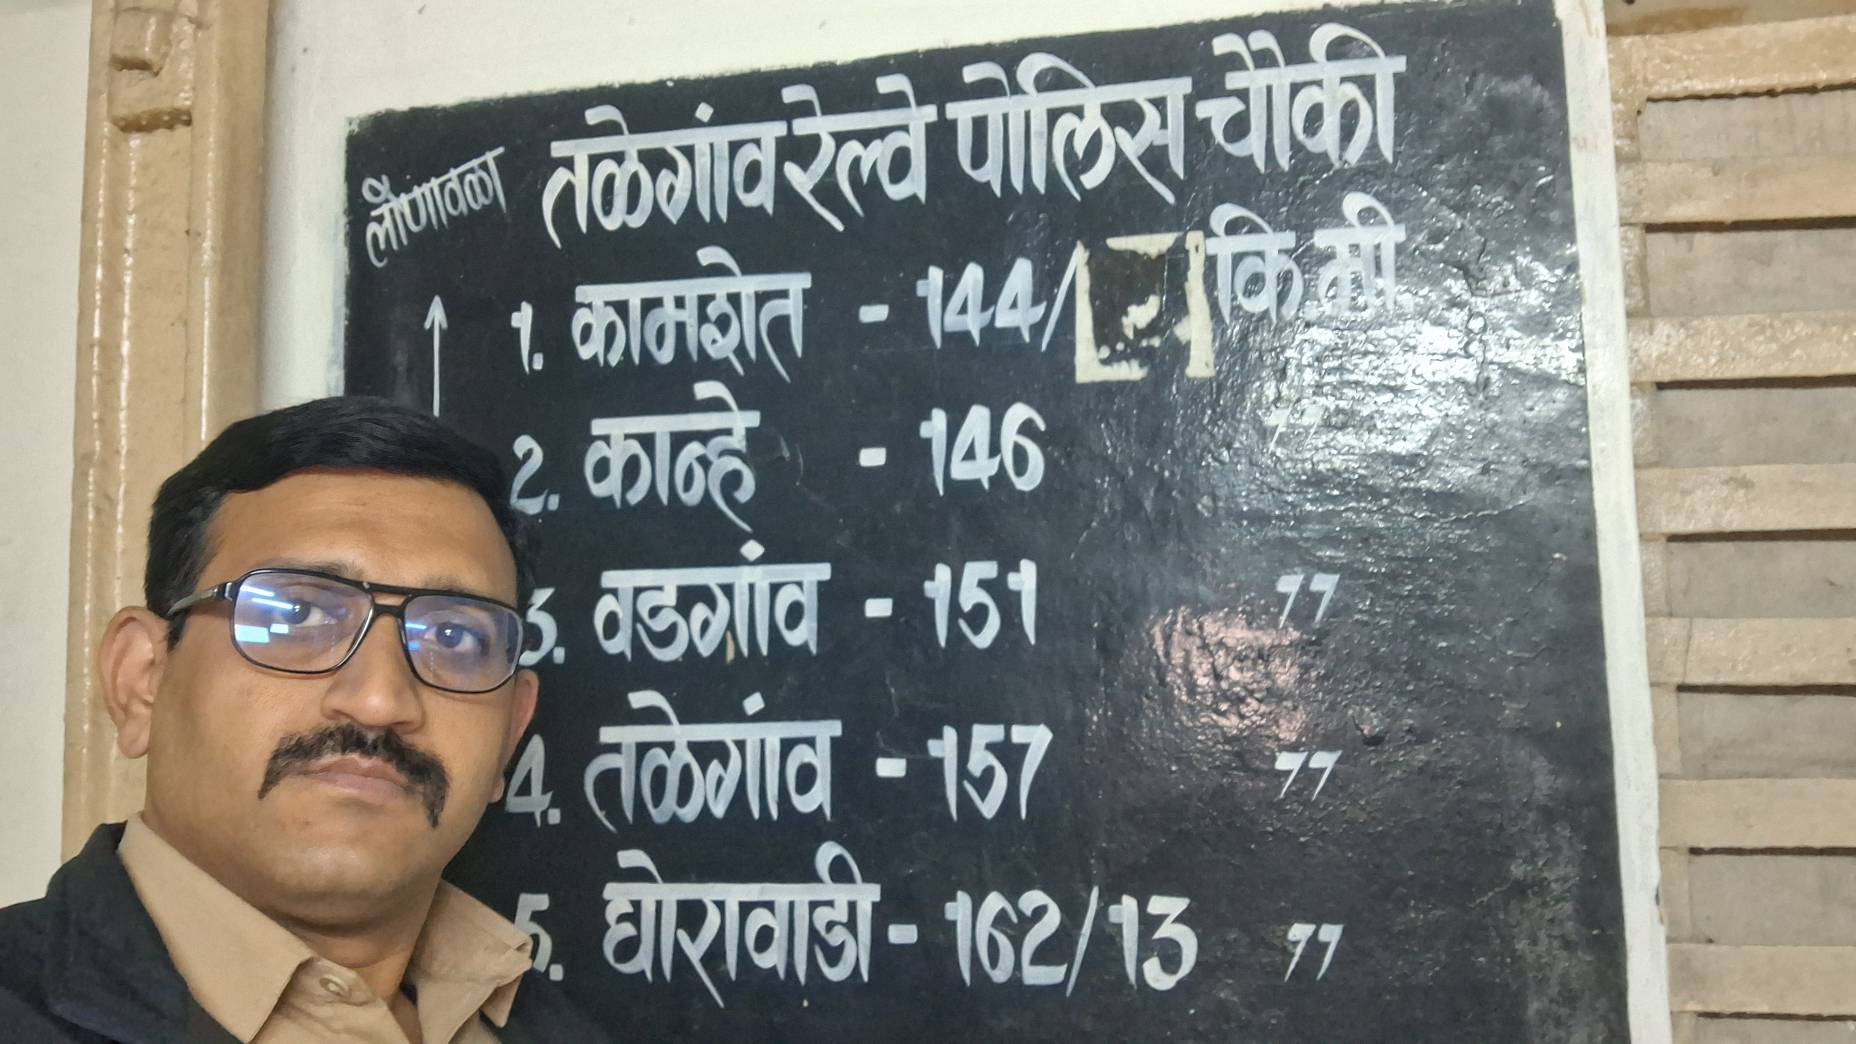 तळेगांव रेल्वे पोलिस चौकी
लोणावळा
1. कामशेत - 144/ कि.मी.
2. कान्हे - 146 "
3. वडगांव - 151 "
4. तळेगांव - 157 "
5. घोरावाडी - 162/13 "